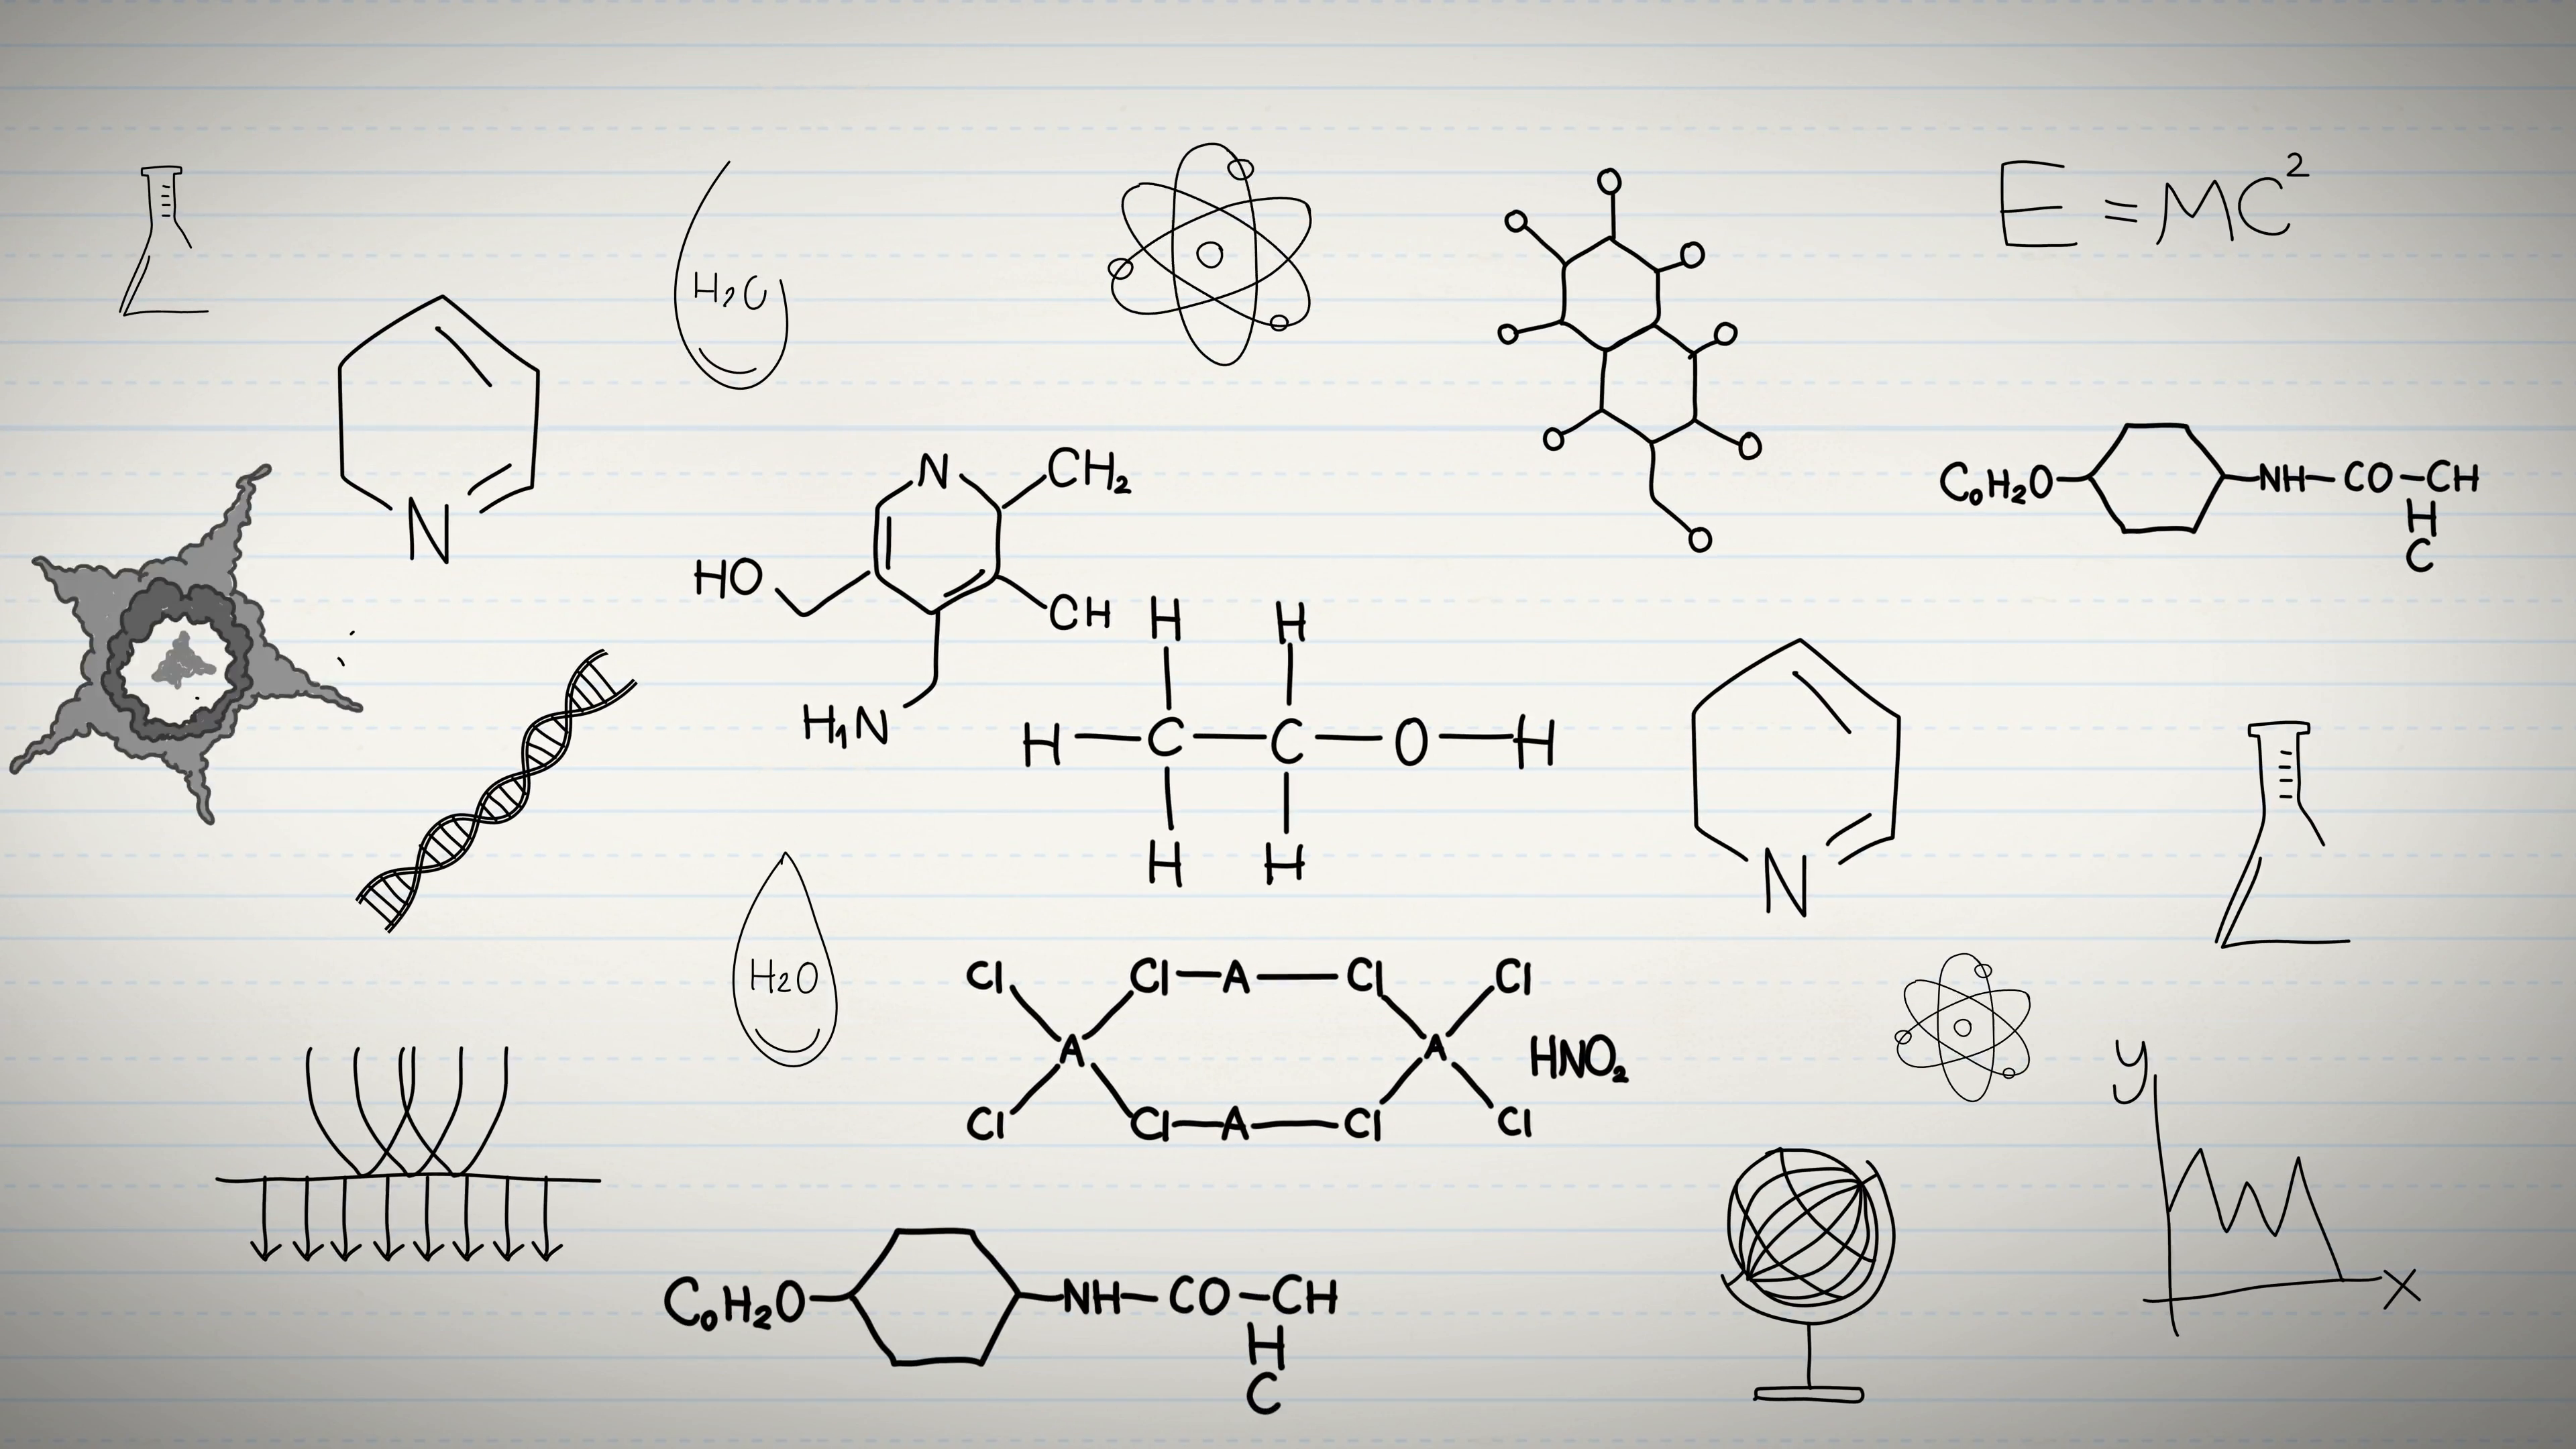 E = MC²
H₂O
N
N
CH₂
HO
CH
H₁N
C₀H₂O NH CO CH
H
C
H H
H C C O H
H H
N
H₂O
Cl Cl A Cl Cl
A A HNO₂
Cl Cl A Cl Cl
y
x
C₀H₂O NH CO CH
H
C